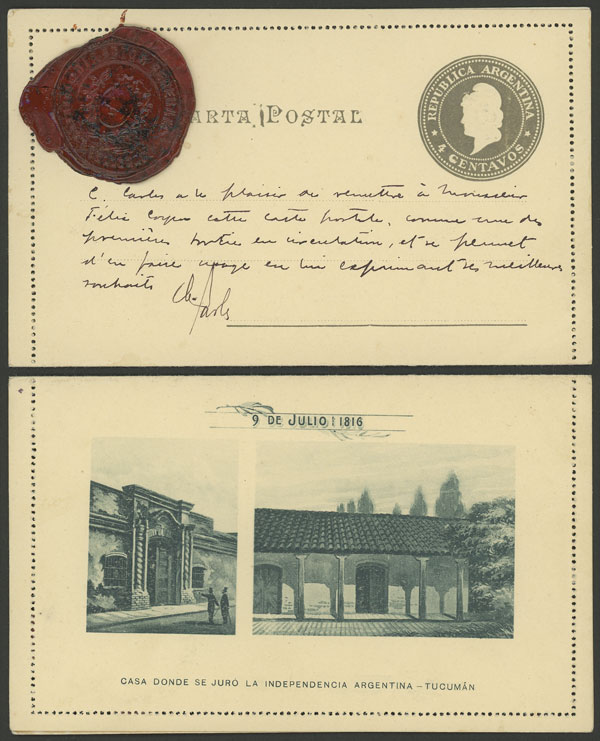 CARTA POSTAL
REPUBLICA ARGENTINA
4 CENTAVOS
C. Carles a le plaisir de remettre à Monsieur
Félix cette carte postale, comme une des
premières en circulation, et se permet
d'en faire usage en lui exprimant ses meilleurs
souhaits
9 DE JULIO DE 1816
CASA DONDE SE JURÓ LA INDEPENDENCIA ARGENTINA – TUCUMÁN